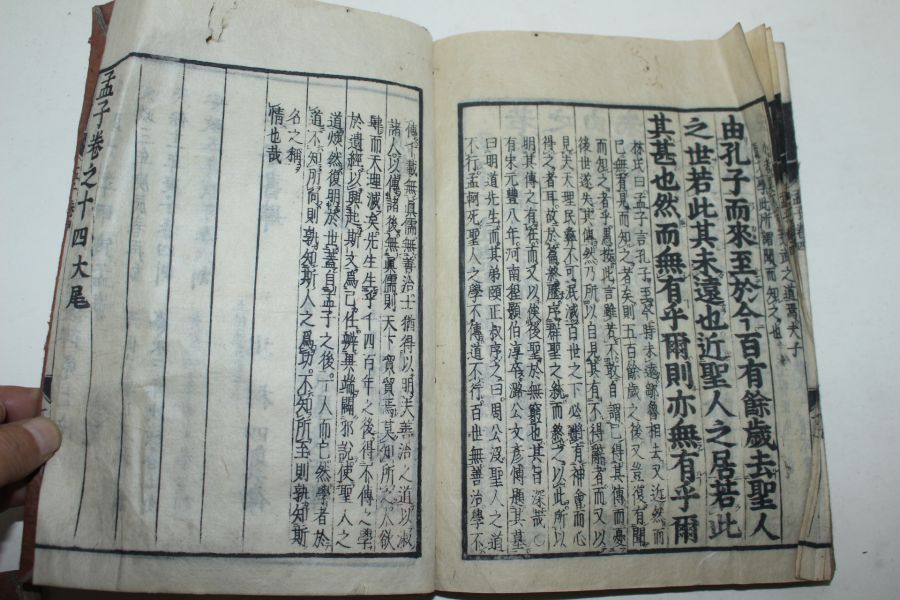 由孔子而來至於今百有餘歲去聖人
之世若此其未遠也近聖人之居若此
其甚也然而無有乎爾則亦無有乎爾
林氏曰孟子言孔子至今時未遠鄒魯相去又近然而
已無有見而知之者矣則五百餘歲之後又豈復有聞
而知之者乎愚按此言雖若不敢自謂已得其傳而憂
後世遂失其傳然乃所以自見其有不得辭者而又以
見夫天理民彝不可泯滅百世之下必將有神會而心
得之者耳故於篇終歷序群聖之統而終之以此所以
明其傳之有在而又以俟後聖於無窮也其旨深哉
有宋元豐八年河南程顥伯淳卒潞公文彥博題其墓
曰明道先生而其弟頤正叔序之曰周公沒聖人之道
不行孟軻死聖人之學不傳道不行百世無善治學不
傳千載無真儒無善治士猶得以明夫善治之道以淑
諸人以傳諸後無真儒則天下貿貿焉莫知所之人欲
肆而天理滅矣先生生乎千四百年之後得不傳之學
於遺經以興起斯文為己任辨異端闢邪說使聖人之
道煥然復明於世蓋自孟子之後一人而已然學者於
道不知所向則孰知斯人之為功不知所至則孰知斯
名之稱
情也哉
孟子卷之十四大尾